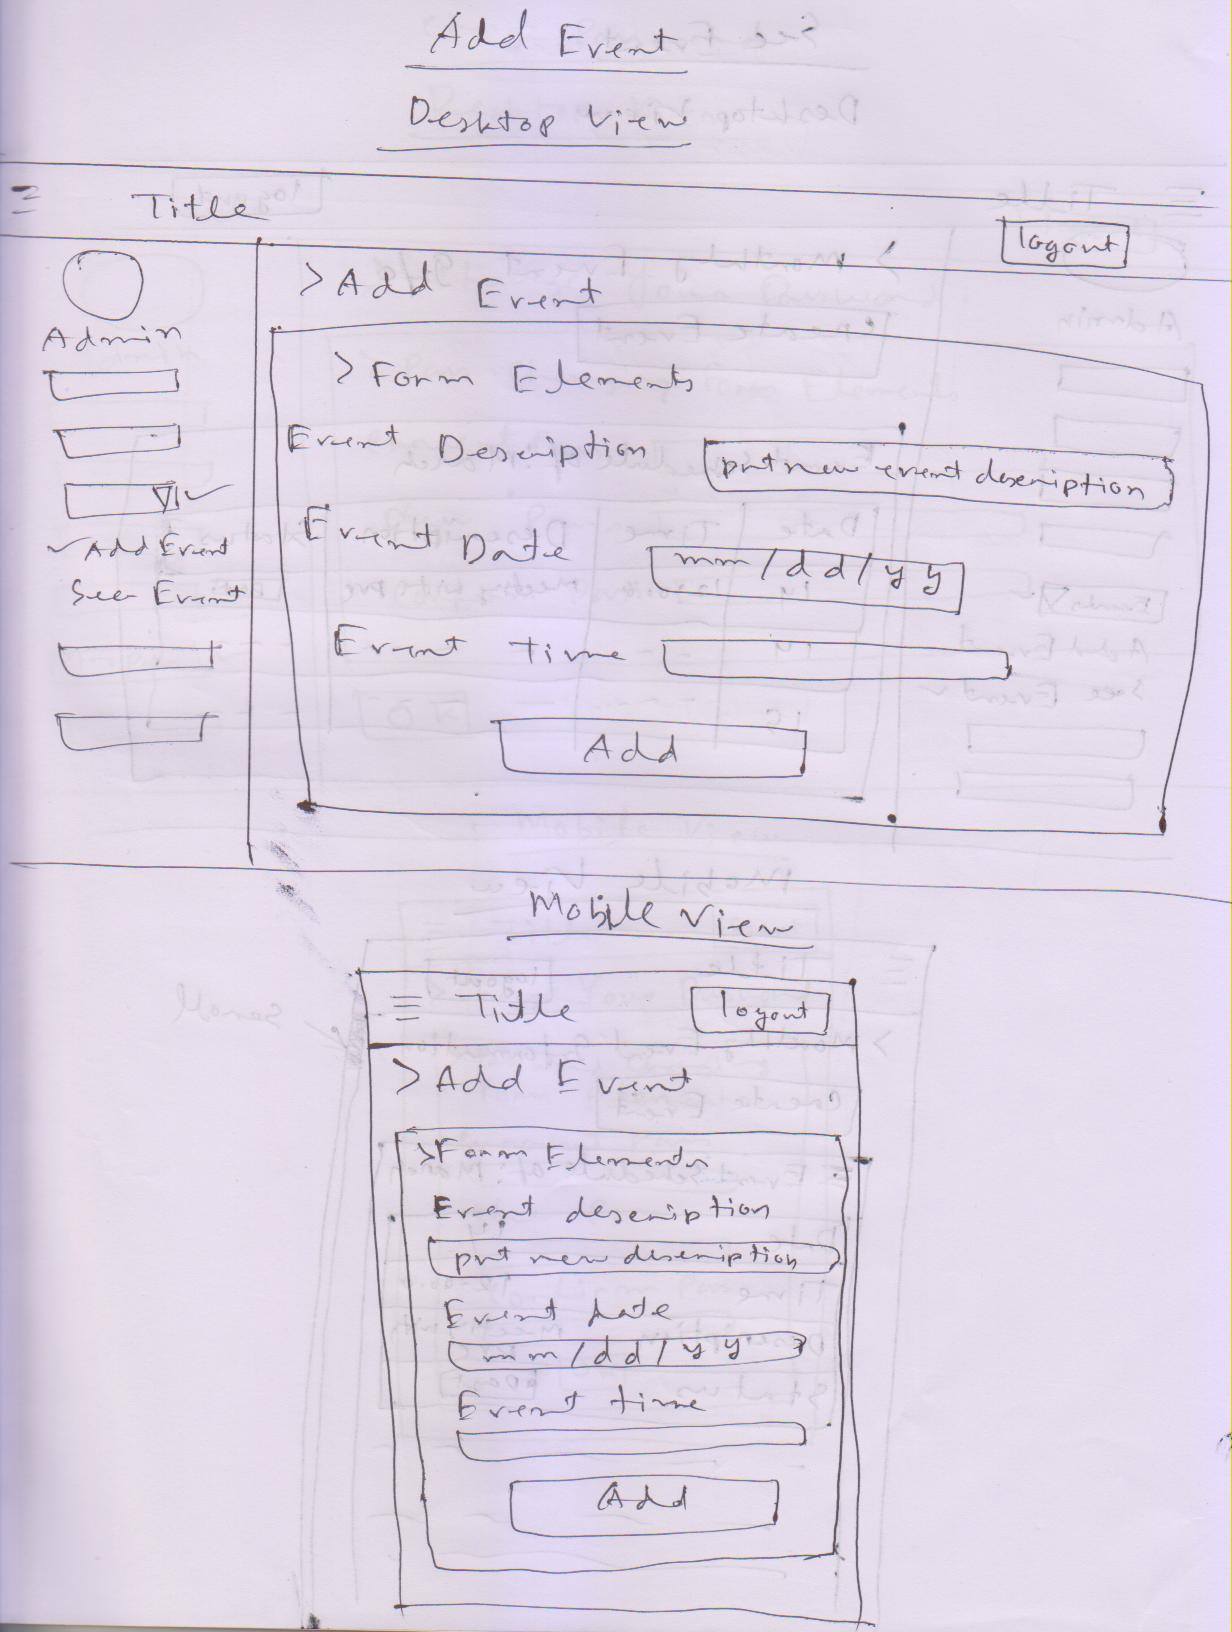 Add Event
Desktop View
Title
logout
Admin
Add Event
See Event
>Add Event
>Form Elements
Event Description
put new event description
Event Date
mm/dd/yy
Event time
Add
Mobile View
Title
logout
>Add Event
>Form Elements
Event description
put new description
Event date
mm/dd/yy
Event time
Add